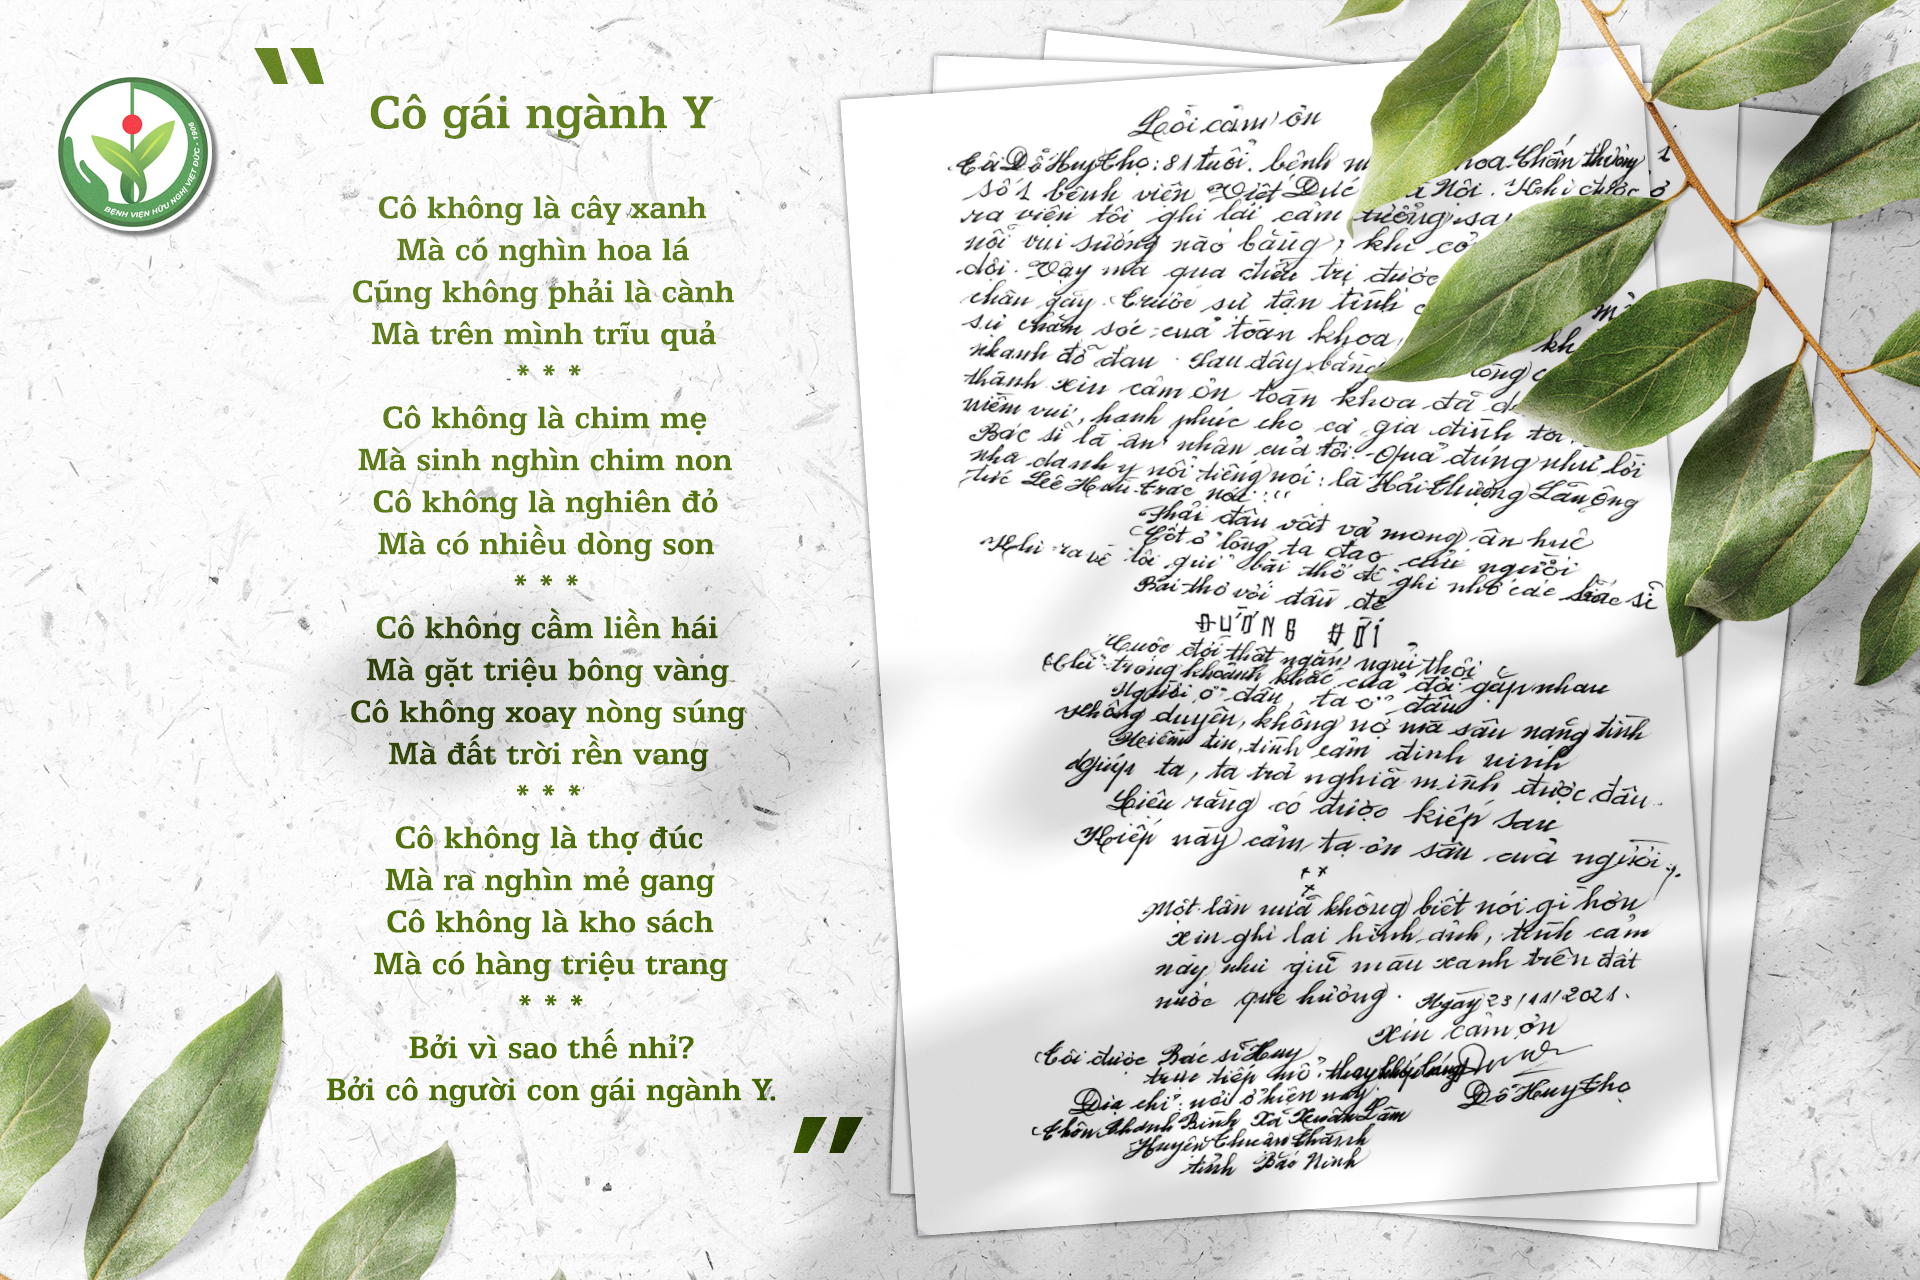 BỆNH VIỆN HỮU NGHỊ VIỆT ĐỨC - 1906
Cô gái ngành Y
Cô không là cây xanh
Mà có nghìn hoa lá
Cũng không phải là cành
Mà trên mình trĩu quả
* * *
Cô không là chim mẹ
Mà sinh nghìn chim non
Cô không là nghiên đỏ
Mà có nhiều dòng son
* * *
Cô không cầm liền hái
Mà gặt triệu bông vàng
Cô không xoay nòng súng
Mà đất trời rền vang
* * *
Cô không là thợ đúc
Mà ra nghìn mẻ gang
Cô không là kho sách
Mà có hàng triệu trang
* * *
Bởi vì sao thế nhỉ?
Bởi cô người con gái ngành Y.
Lời cảm ơn
Tôi Đỗ Huy Thọ: 81 tuổi. bệnh khoa Chấn thương 1
Số 1 bệnh viện Việt Đức Hà Nội. Khi được
ra viện tôi ghi lại cảm tưởng
nỗi vui sướng nào bằng, khi
đời. Vậy mà qua điều trị được
chân gãy. Trước sự tận tình
sự chăm sóc của toàn khoa,
nhanh đỡ đau. Sau đây bằng
thành xin cảm ơn toàn khoa đã
niềm vui, hạnh phúc cho cả gia đình tôi
Bác sĩ là ân nhân của tôi. Quả đúng như lời
nhà danh y nổi tiếng nói: là Hải Thượng Lãn Ông
tức Lê Hữu Trác nói: "
Phải đâu vất vả mong ân huệ
Cốt ở lòng ta đạo cứu người
Khi ra về tôi gửi bài thơ để ghi nhớ các bác sĩ
Bài thơ với đầu đề
ĐƯỜNG ĐỜI
Cuộc đời thật ngắn ngủi thôi
Chỉ trong khoảnh khắc của đời gặp nhau
Người ở đâu, ta ở đâu
Không duyên, không nợ mà sâu nặng tình
Niềm tin, tình cảm đinh ninh
Giúp ta, ta trả nghĩa mình được đâu.
Liệu rằng có được kiếp sau
Kiếp này cảm tạ ơn sâu của người.
x x
x
Một lần nữa không biết nói gì hơn
xin ghi lại hình ảnh, tình cảm
này như giữ màu xanh trên đất
nước quê hương. Ngày 23/11/2021.
Xin cảm ơn
Tôi được Bác sĩ Huy
trực tiếp mổ: thay khớp háng
Đỗ Huy Thọ
Địa chỉ: nơi ở hiện nay
Thôn Thanh Bình Xã Xuân Lâm
Huyện Thuận Thành
tỉnh Bắc Ninh